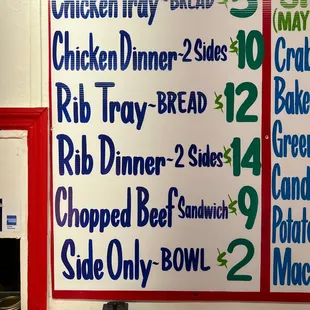 Chicken Tray~BREAD $5
Chicken Dinner~2 Sides $10
Rib Tray~BREAD $12
Rib Dinner~2 Sides $14
Chopped Beef Sandwich $9
Side Only~BOWL $2
(MAY
Crab
Bake
Green
Cand
Potato
Mac